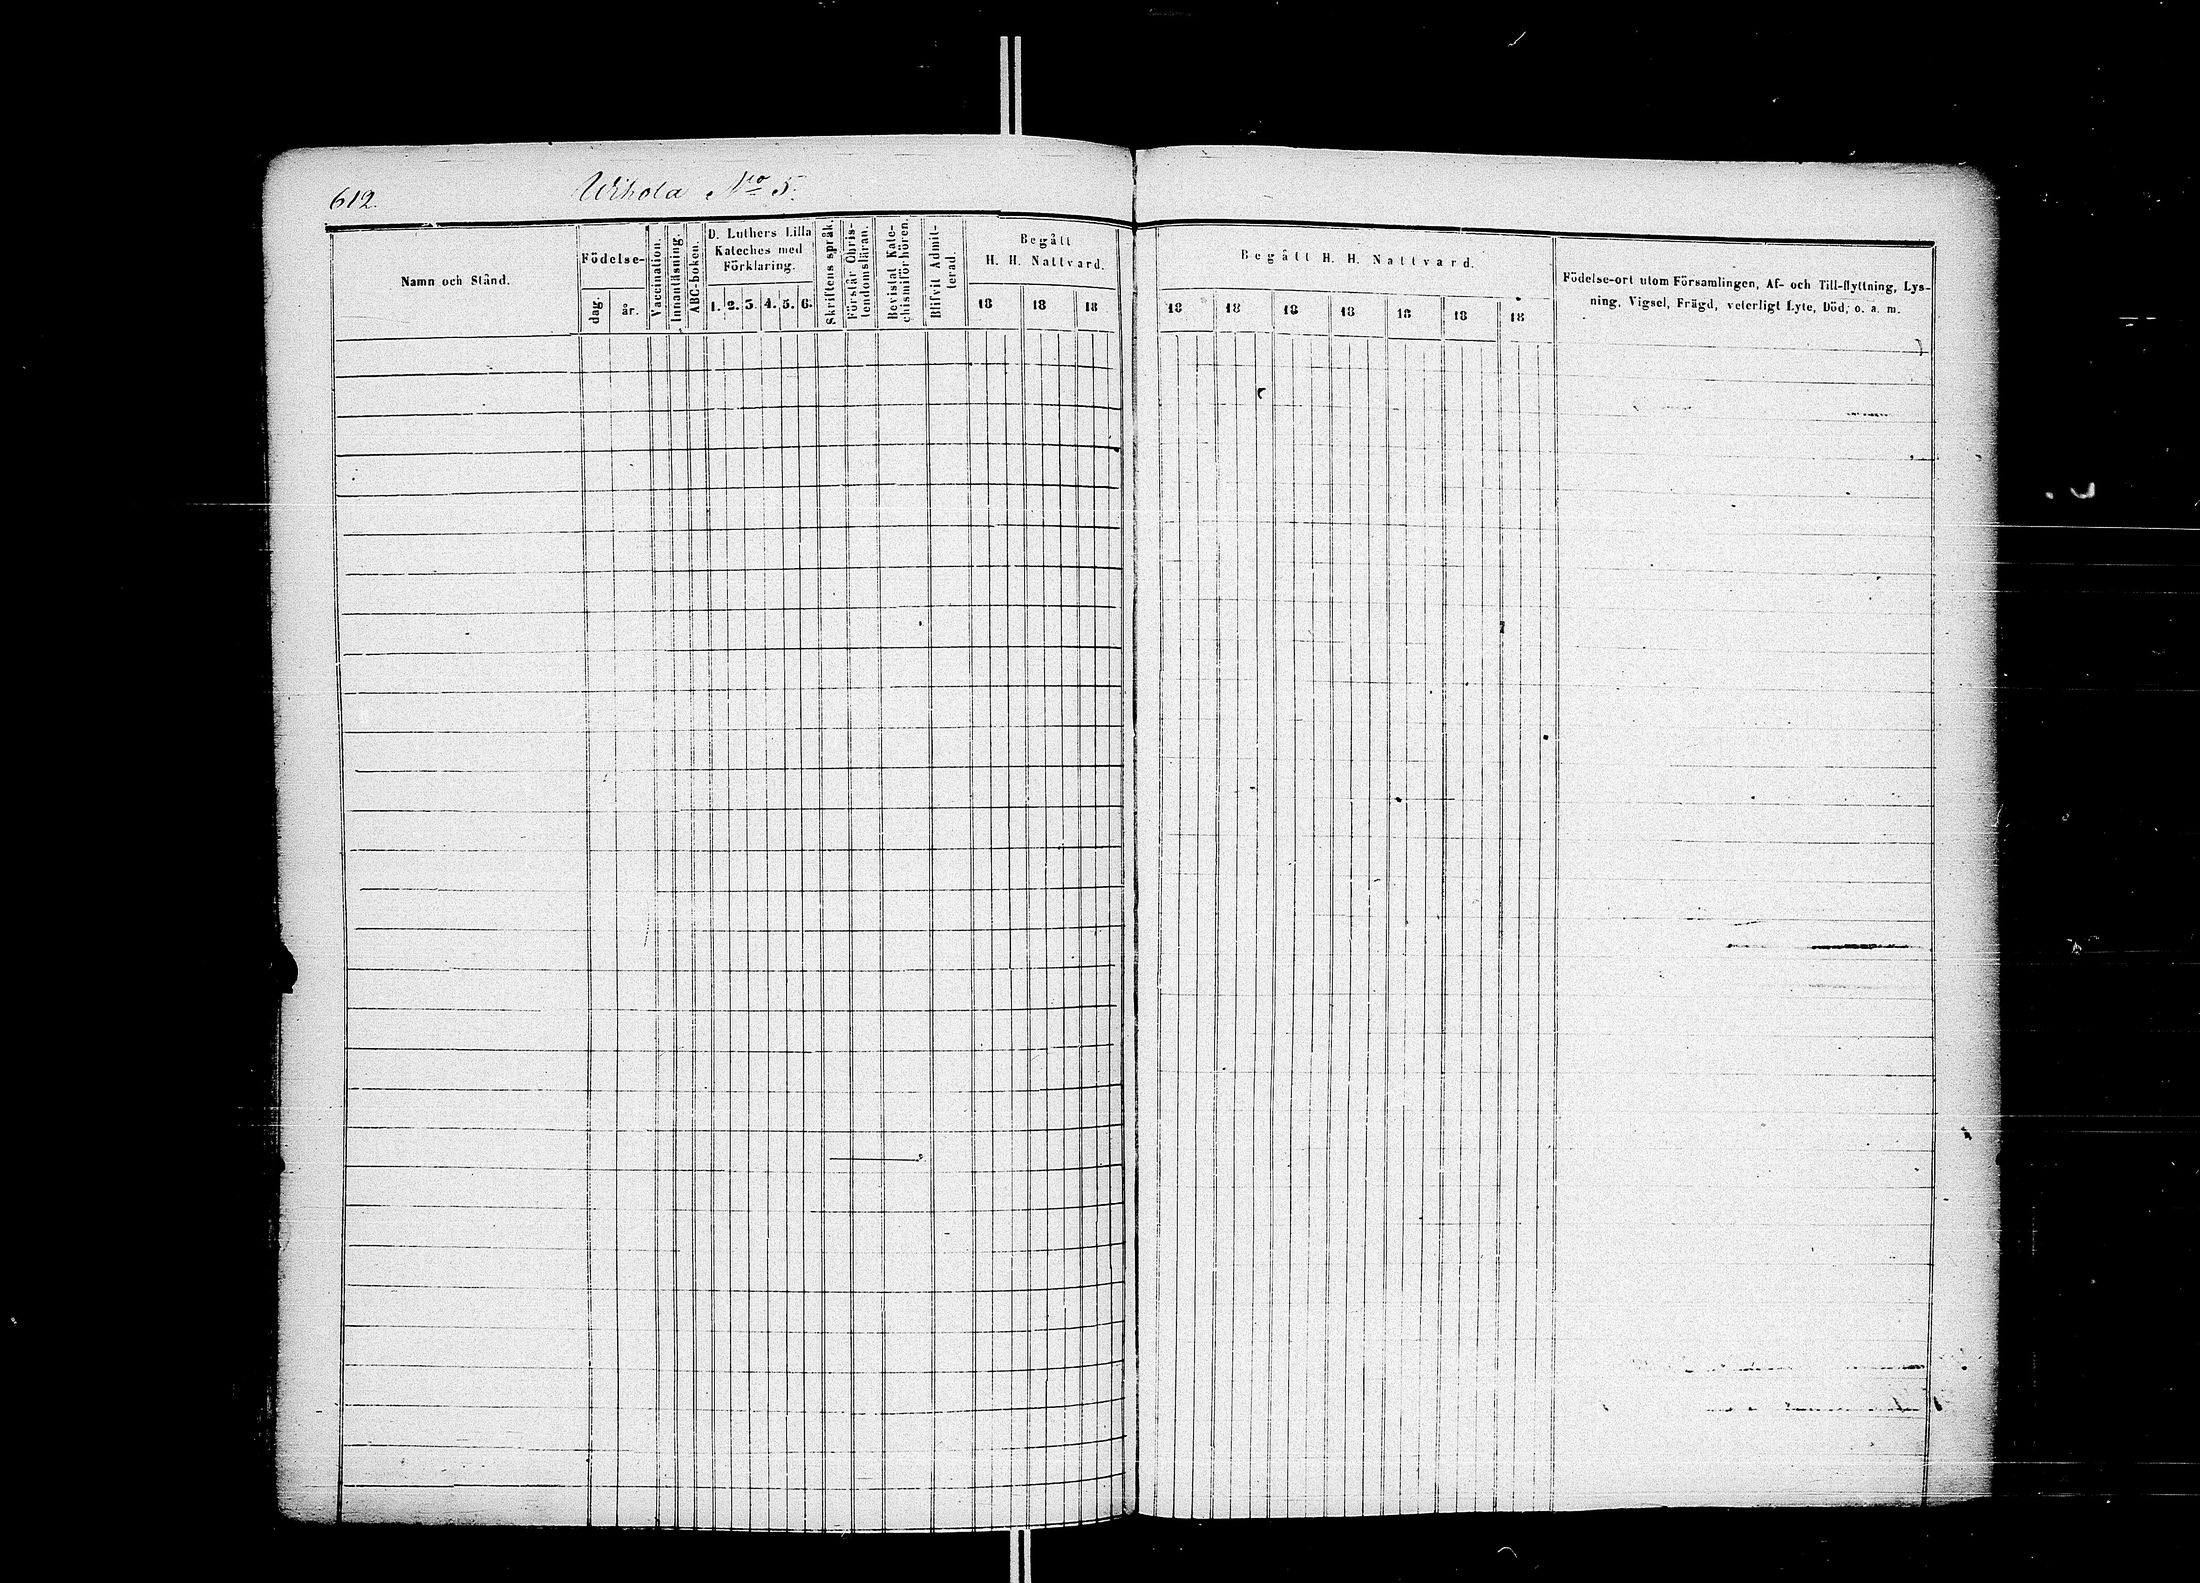 612. Wihola No 5.
Namn och Stånd.
Födelse-
dag.
år.
Vaccination.
Innanläsning.
ABC-boken.
D. Luthers Lilla
Kateches med
Förklaring.
1. 2. 3. 4. 5. 6.
Skriftens språk.
Förstår Chris-
tendomsläran.
Bevistat Kate-
chismiförhören.
Blifvit Admit-
terad.
Begått
H. H. Nattvard.
18 18 18
Begått H. H. Nattvard.
18 18 18 18 18 18 18
Födelse-ort utom Församlingen, Af- och Till-flyttning, Lys-
ning, Vigsel, Frägd, veterligt Lyte, Död, o. a. m.